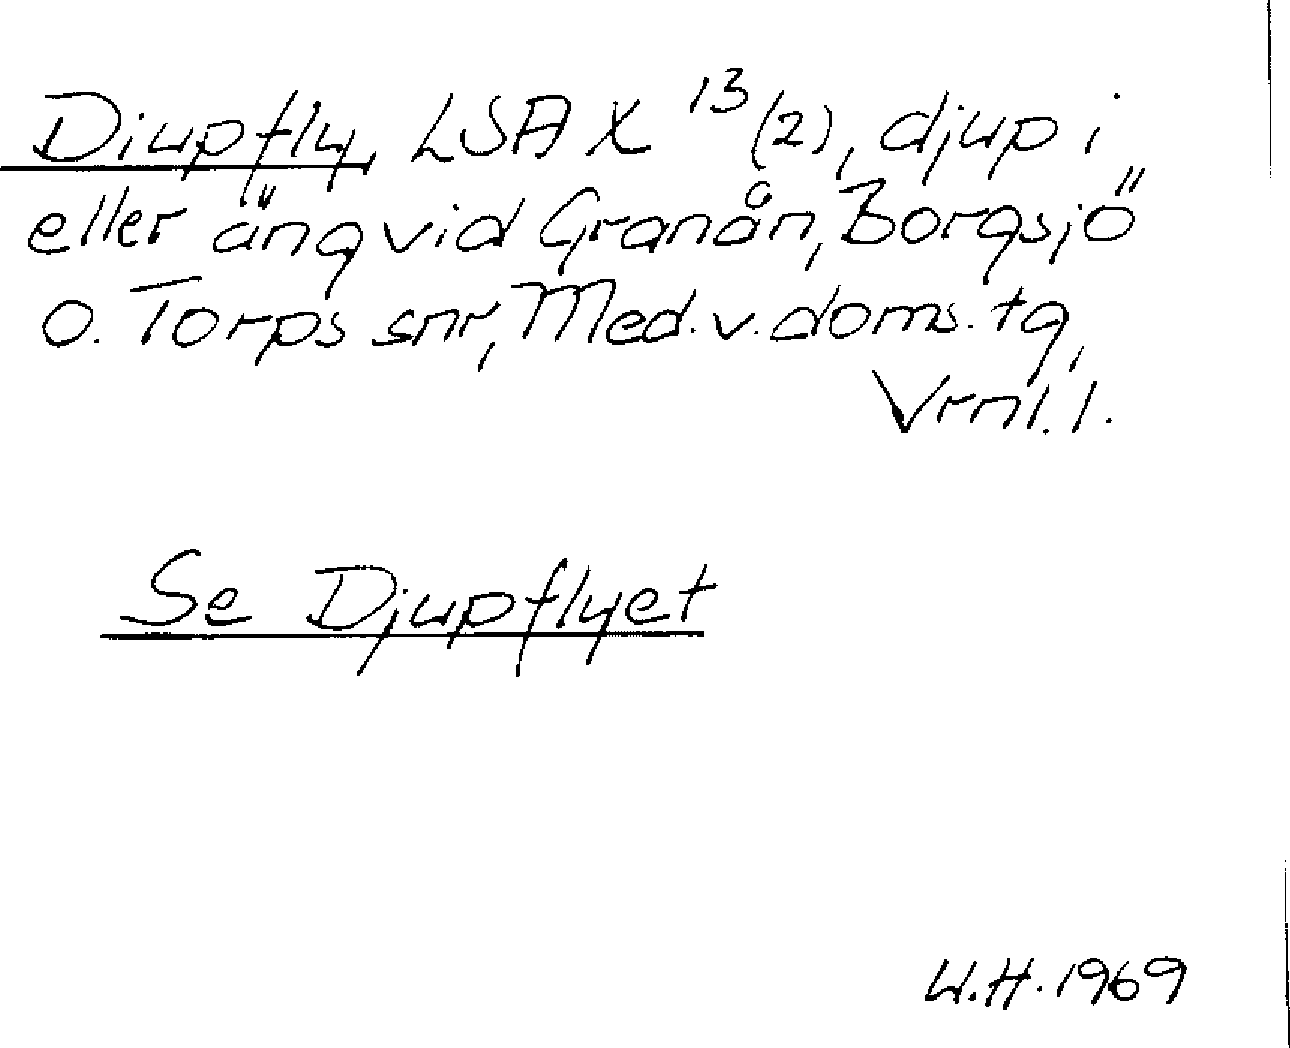 Diupfly, LSA X 13(2), djup i
eller äng vid Granån, Borgsjö
o. Torps snr, Med. v. doms. tg,
Vrnl. l.
Se Djupflyet
W.H. 1969